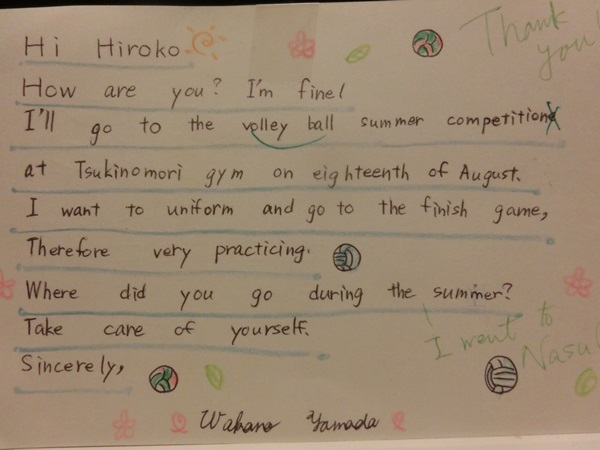 Hi Hiroko
Thank you!
How are you? I'm fine!
I'll go to the volley ball summer competition
at Tsukinomori gym on eighteenth of August.
I want to uniform and go to the finish game,
Therefore very practicing.
Where did you go during the summer?
I went to Nasu!
Take care of yourself.
Sincerely,
Wakana Yamada